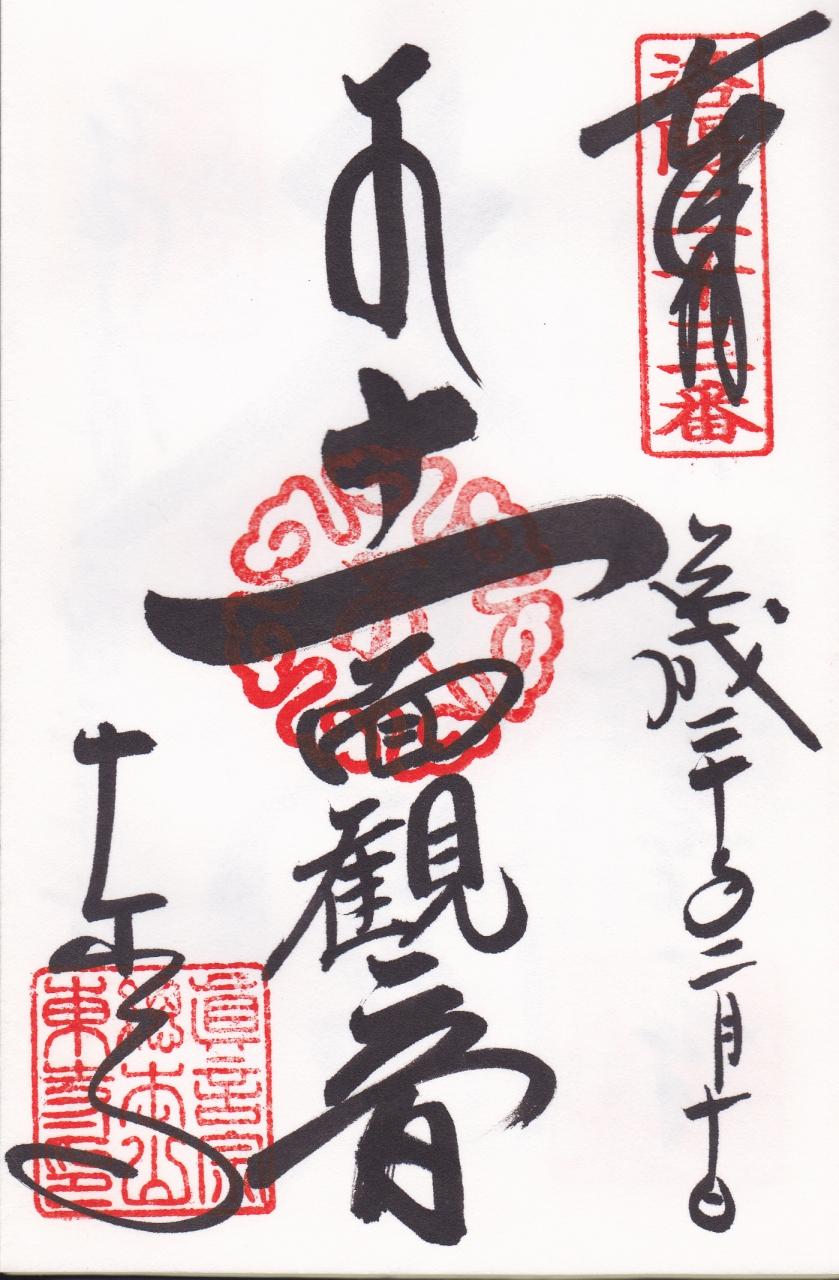 奉拝
洛陽二十三番
平成三十年二月十日
十一面観音
東寺
真言宗
総本山
東寺印